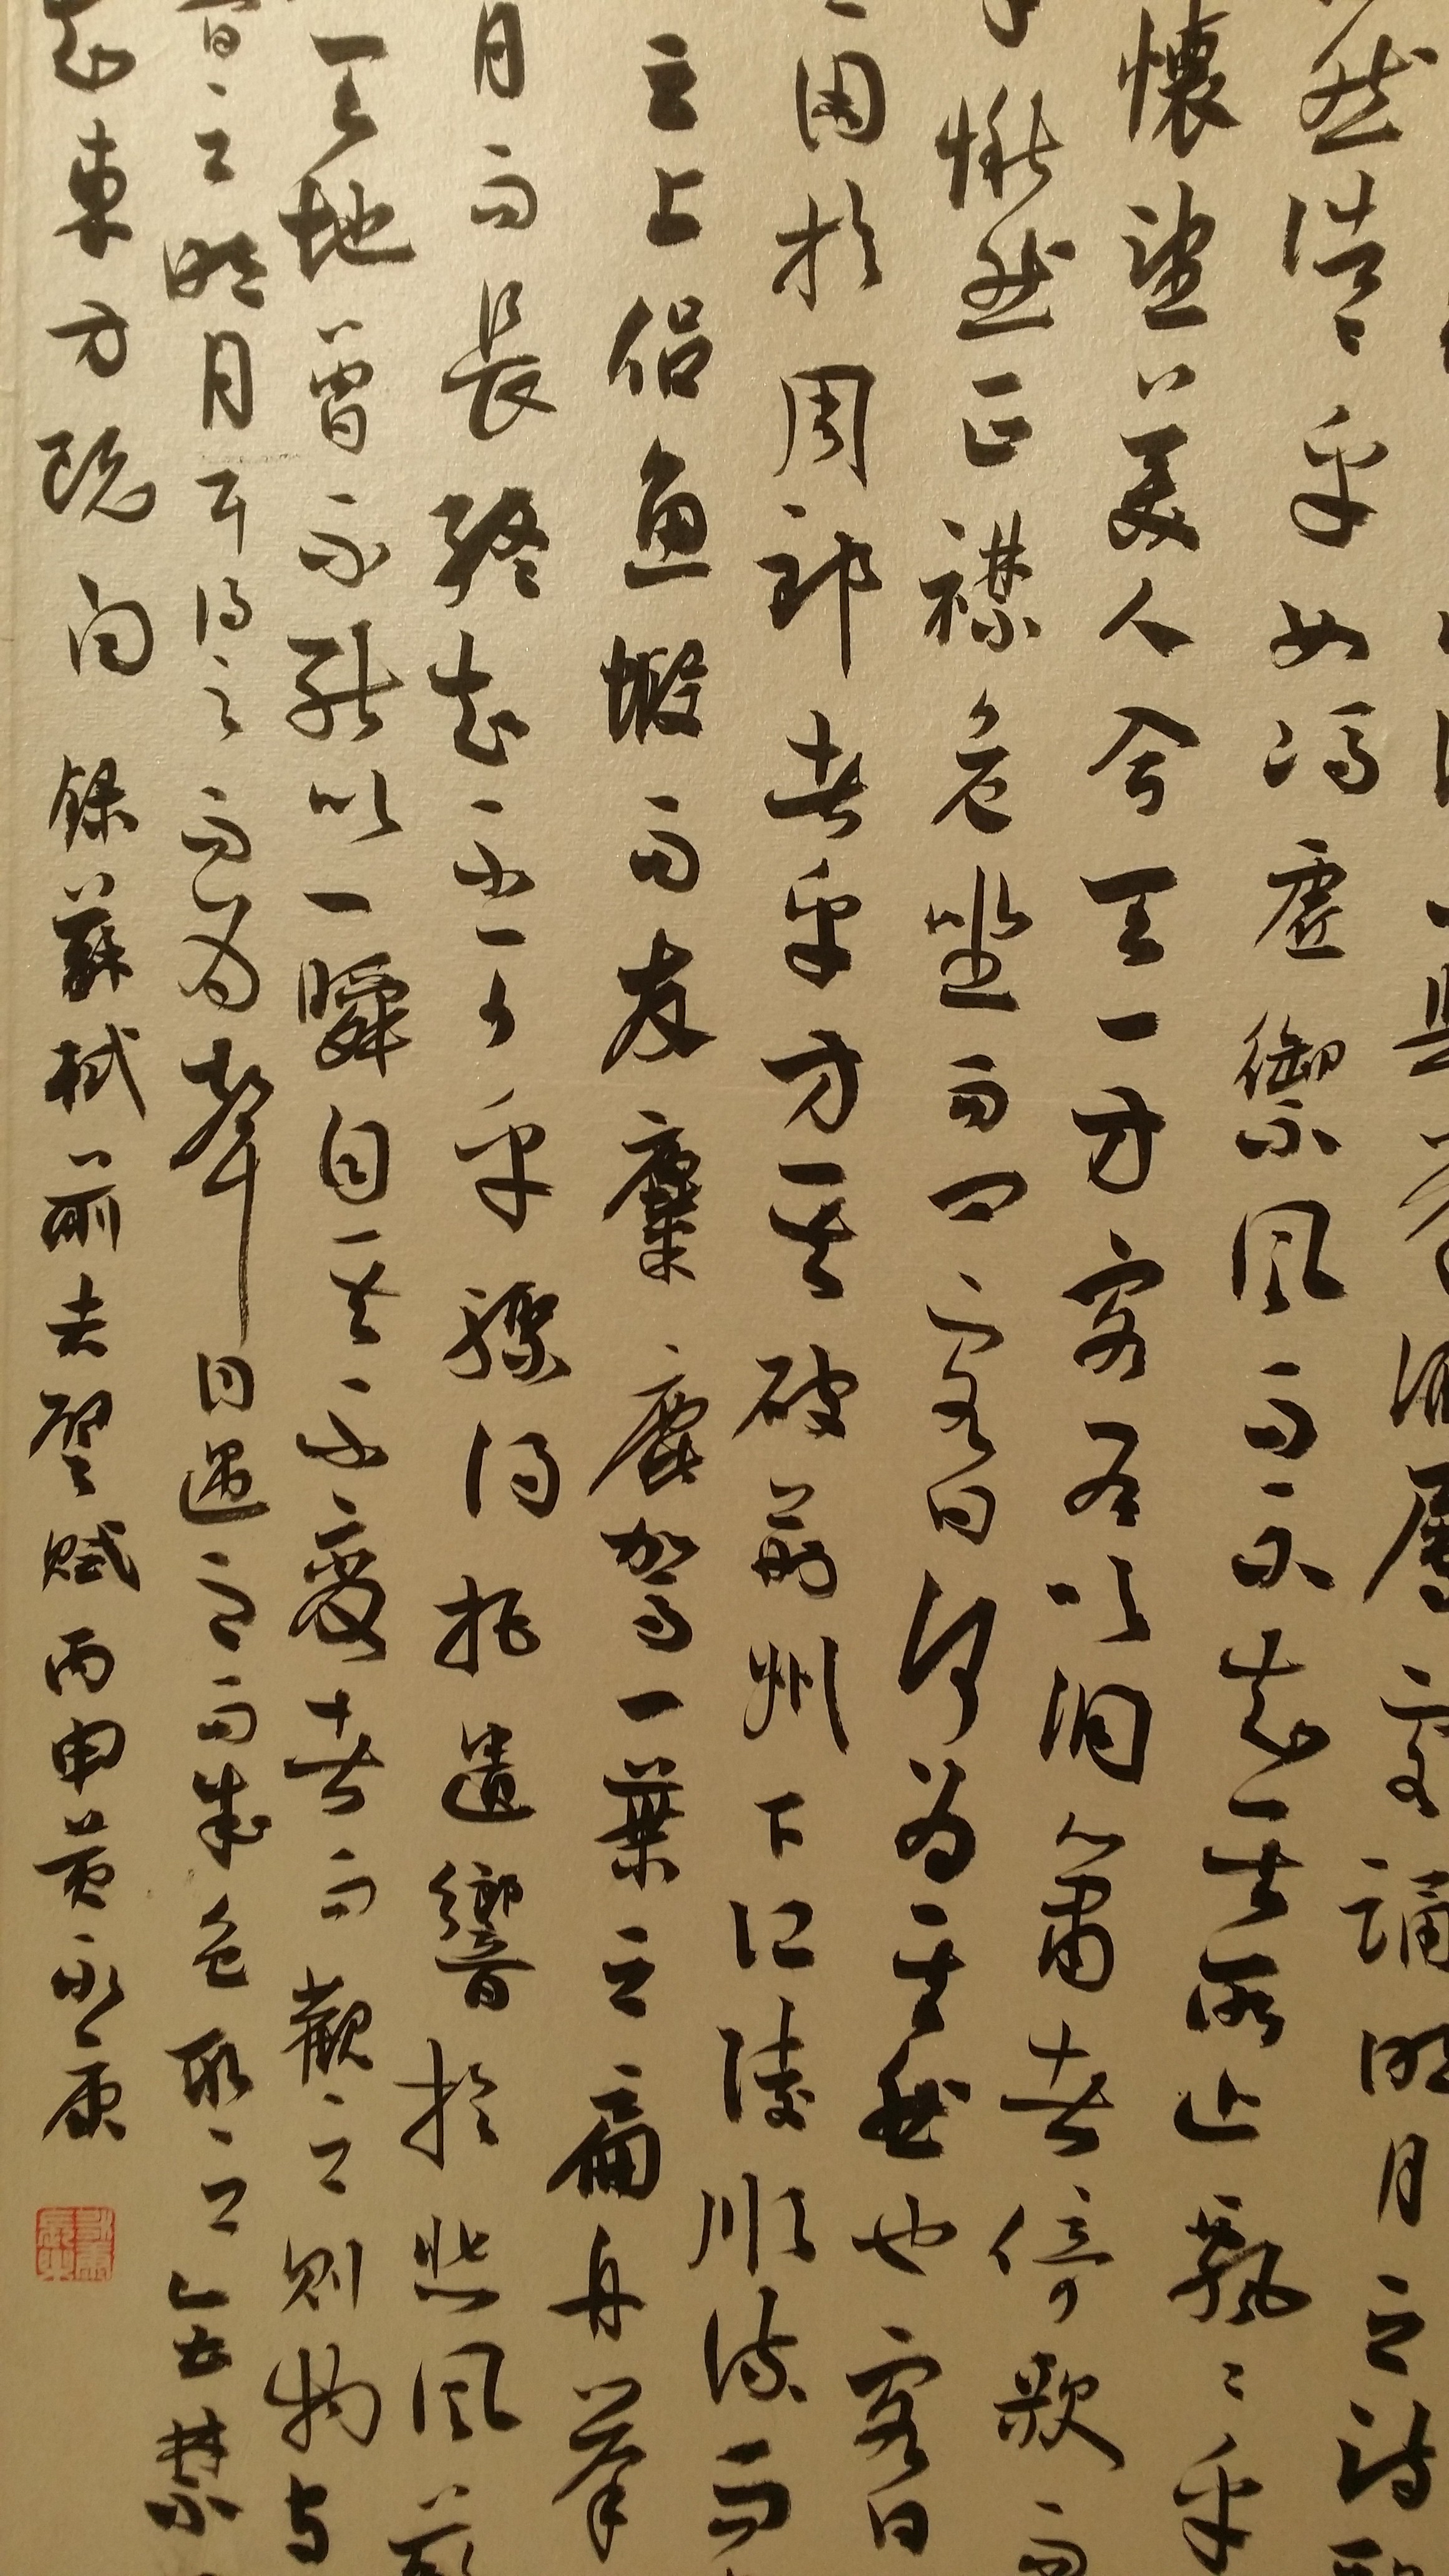 屬客誦明月之詩
然浩浩乎如馮虛御風而不知其所止飄飄乎
懷望美人兮天一方客有吹洞簫者倚歌而
愀然正襟危坐而問客曰何為其然也客曰
困於周郎者乎方其破荊州下江陵順流而
之上侶魚蝦而友麋鹿駕一葉之扁舟舉
月而長終知不可乎驟得托遺響於悲風蘇
天地曾不能以一瞬自其不變者而觀之則物與
之明月耳得之而為聲目遇之而成色取之無禁
東方既白 錄蘇軾前赤壁賦丙申黃永康